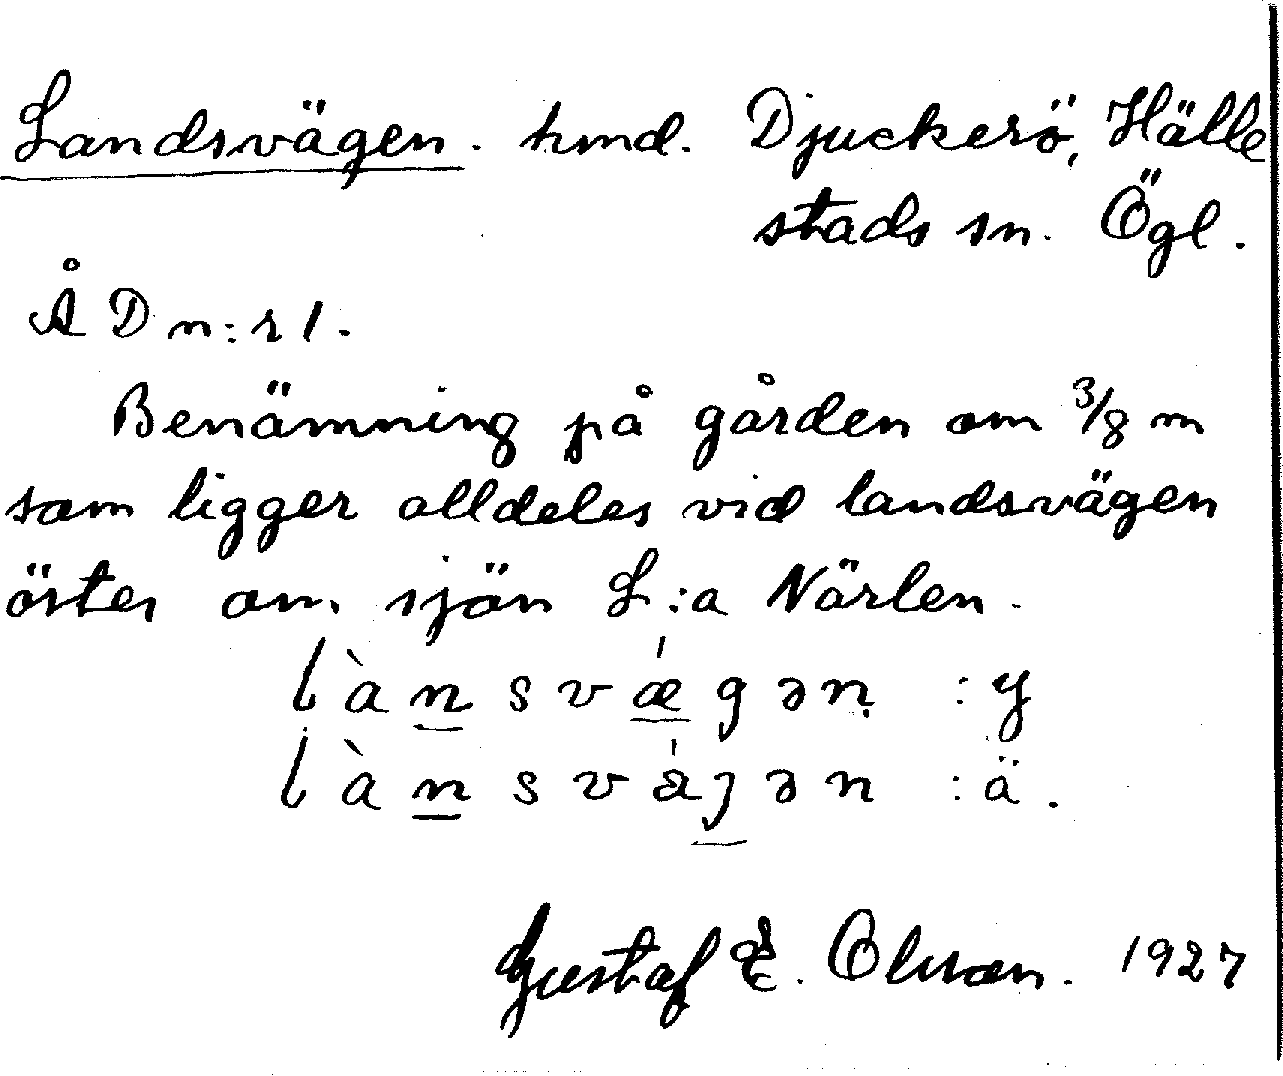 Landsvägen. hmd. Djuckerö, Hälle
stads sn. Ögl.
Å D n:r 1.
Benämning på gården om 3/8 m
som ligger alldeles vid landsvägen
öster om sjön L:a Närlen.
lànsvǽgən :y
lànsvájən :ä.
Gustaf E. Olsson. 1927